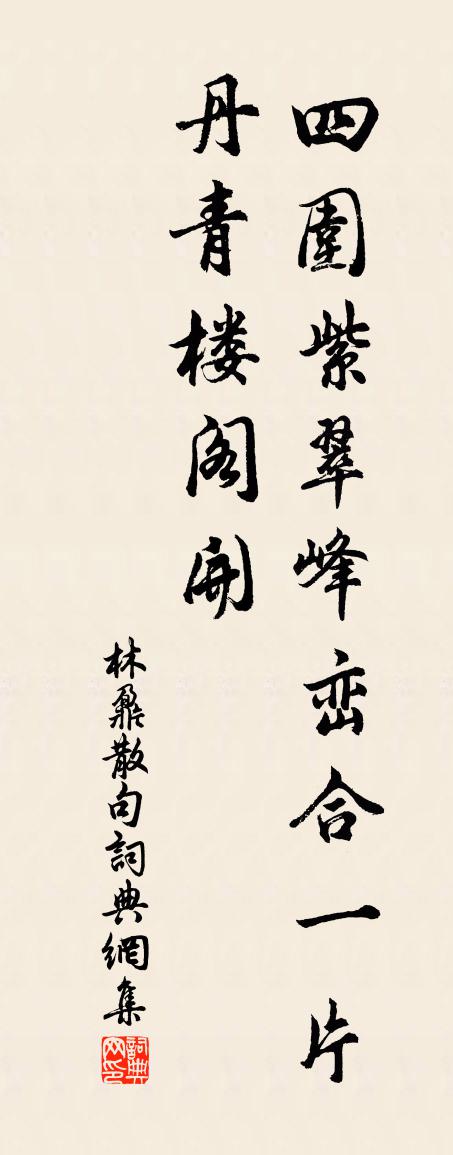 四圍紫翠峰峦合一片
丹青楼阁開
林鼐散句詞典網集
詞典网印